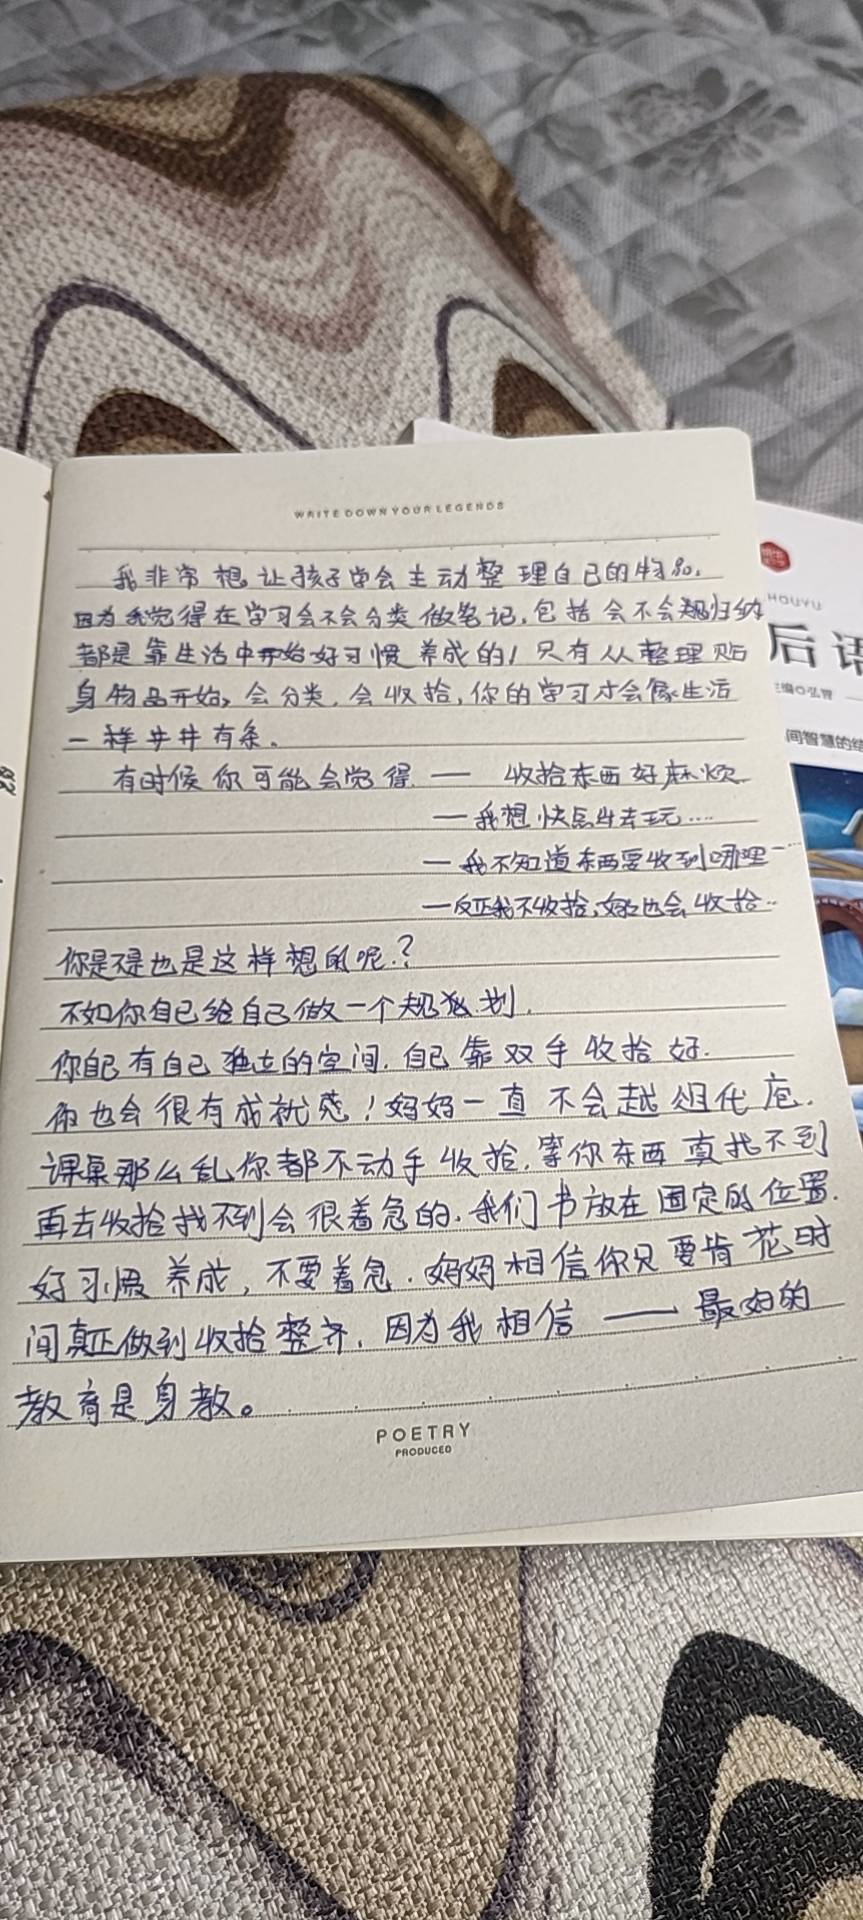 WRITE DOWN YOUR LEGENDS
我非常想让孩子学会主动整理自己的物品.
因为我觉得在学习会不会分类做笔记,包括会不会归纳
都是靠生活中开始好习惯养成的!只有从整理贴
身物品开始,会分类,会收拾,你的学习才会像生活
一样井井有条.
有时候你可能会觉得 — 收拾东西好麻烦
— 我想快点出去玩....
— 我不知道东西要收到哪里-...
— 反正我不收拾,妈也会收拾..
你是不是也是这样想的呢.?
不如你自己给自己做一个规划.
你自己有自己独立的空间.自己靠双手收拾好.
你也会很有成就感!妈妈一直不会越俎代庖.
课桌那么乱你都不动手收拾,等你东西真找不到
再去收拾找不到会很着急的.我们书放在固定的位置.
好习惯养成,不要着急.妈妈相信你只要肯花时
间真正做到收拾整齐.因为我相信——最好的
教育是身教。
POETRY
PRODUCED
HOUYU
后语
主编○弘智
间智慧的结